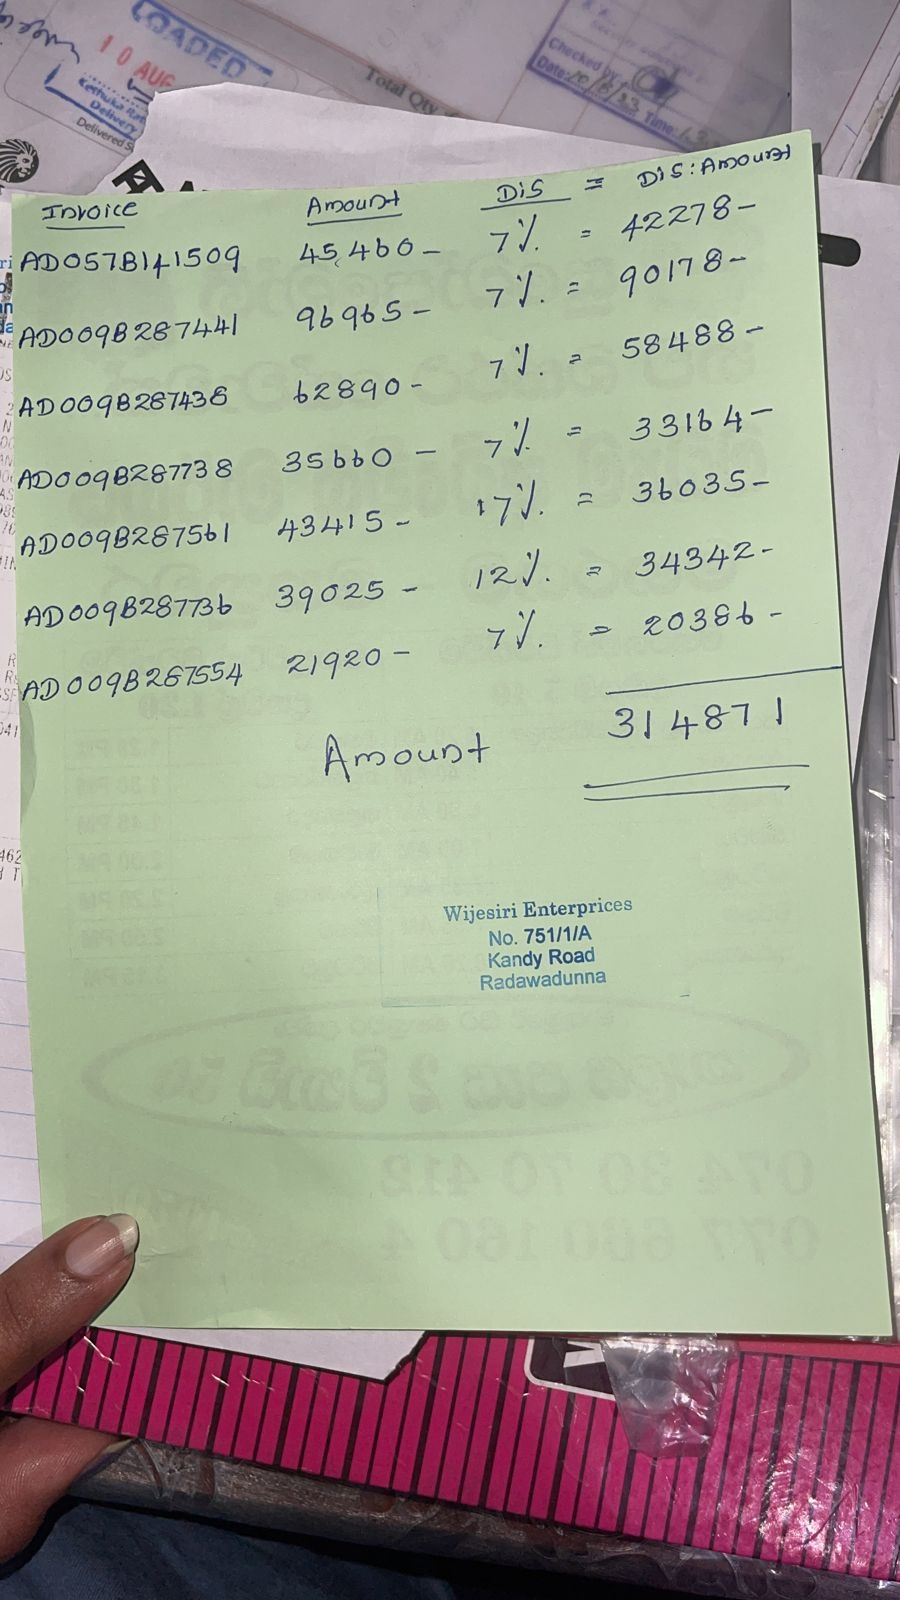 LOADED
10 AUG
Delivery
Delivered
Total Qty
Checked by
Date: Time:
Invoice Amount DiS = DiS:Amount
AD057B141509 45,460- 7% = 42278-
AD009B287441 96965- 7% = 90178-
AD009B287438 62890- 7% = 58488-
AD009B287738 35660- 7% = 33164-
AD009B287561 43415- 17% = 36035-
AD009B287736 39025- 12% = 34342-
AD009B287554 21920- 7% = 20386-
Amount 314871
Wijesiri Enterprices
No. 751/1/A
Kandy Road
Radawadunna